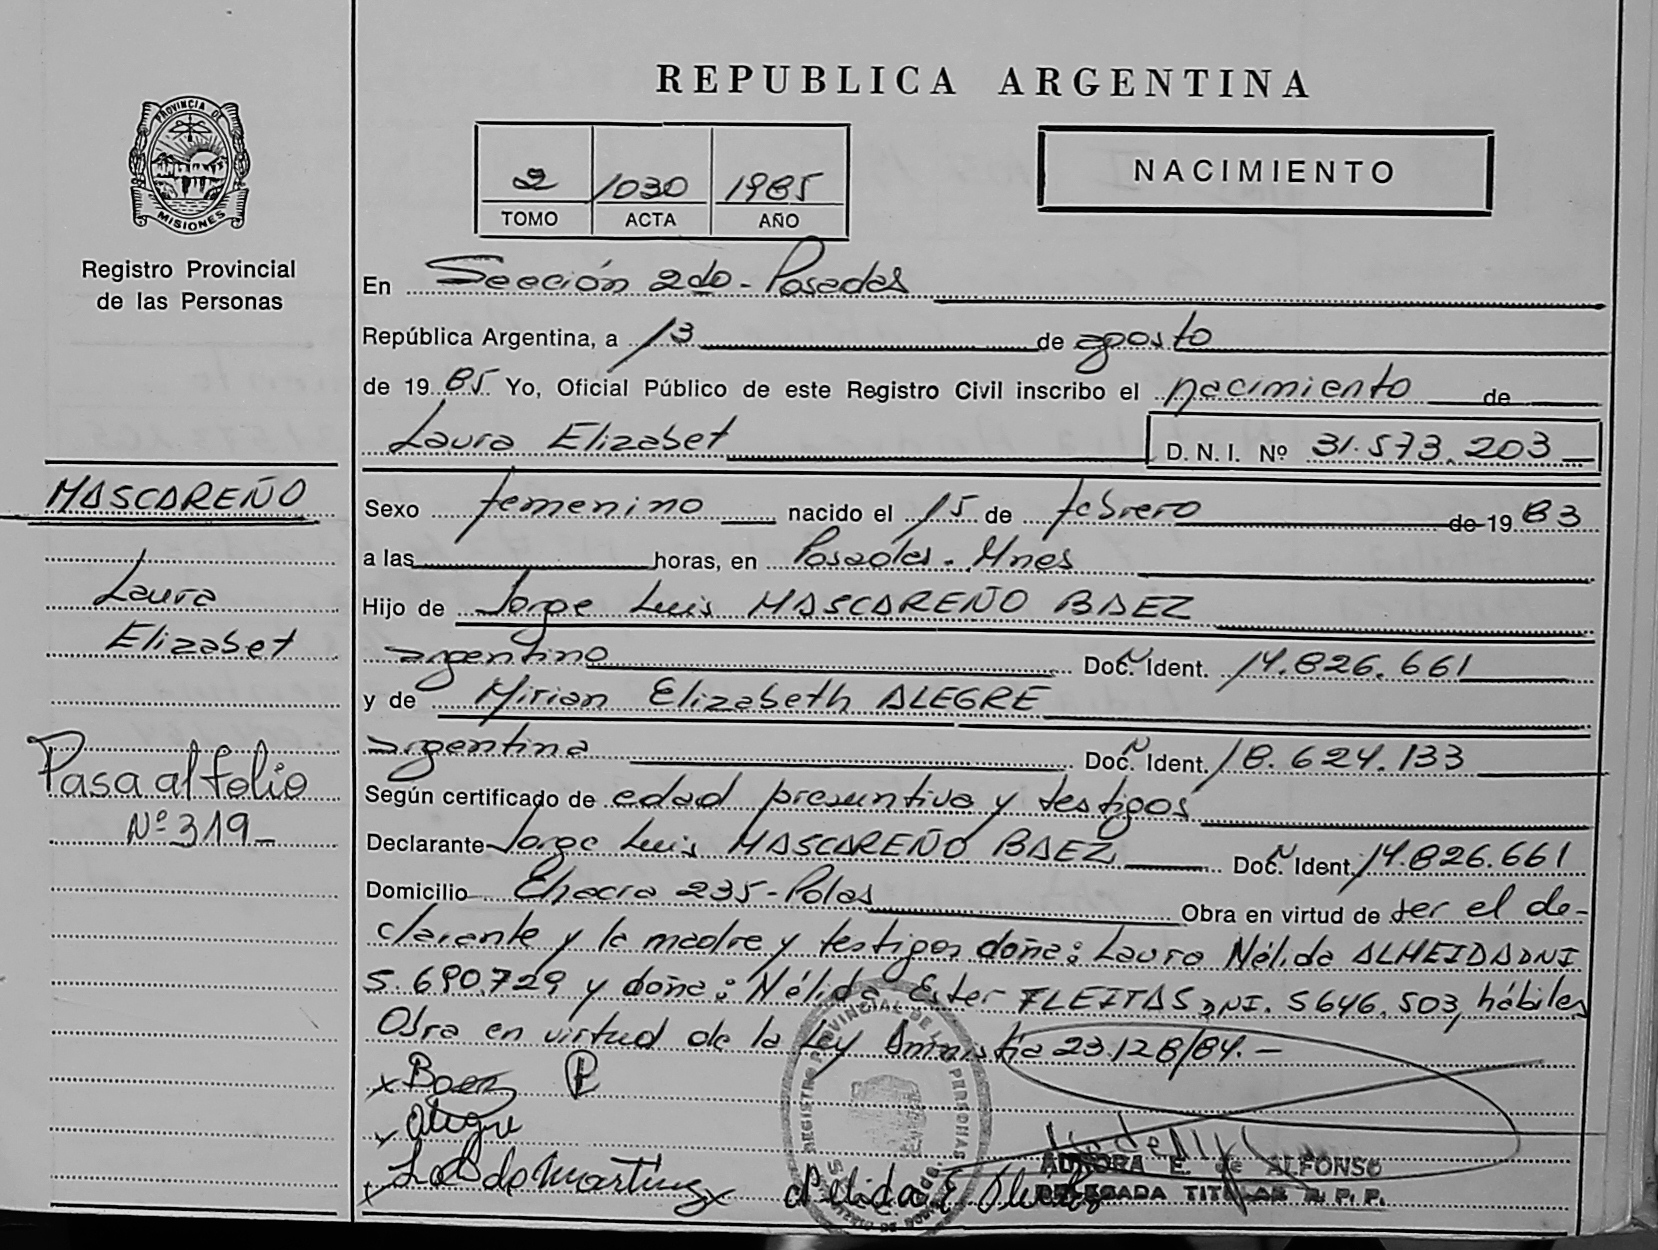 REPUBLICA ARGENTINA
PROVINCIA DE
MISIONES
Registro Provincial
de las Personas
2 1030 1985
TOMO ACTA AÑO
NACIMIENTO
En Sección 2do - Posadas
República Argentina, a 13 de agosto
de 1985 Yo, Oficial Público de este Registro Civil inscribo el nacimiento de
Laura Elizabet D. N. I. Nº 31.573.203
MASCAREÑO
Laura
Elizabet
Pasa al folio
Nº 319-
Sexo femenino nacido el 15 de febrero de 1983
a las horas, en Posadas - Mnes
Hijo de Jorge Luis MASCAREÑO BAEZ
argentino Doc. N Ident. 14.826.661
y de Mirian Elizabeth ALEGRE
argentina Doc. N Ident. 18.624.133
Según certificado de edad presuntiva y testigos
Declarante Jorge Luis MASCAREÑO BAEZ Doc. N Ident. 14.826.661
Domicilio Chacra 235 - Pdas Obra en virtud de ser el de-
clarante y la madre y testigos doña: Laura Nélida ALMEIDA DNI
5.690.729 y doña: Nélida Ester FLEITAS DNI. 5646.503, hábiles
Obra en virtud de la Ley Amnistia 23.128/84.-
x Baez
x Alegre
x
x Nelida E
REGISTRO PROVINCIAL DE LAS PERSONAS
AURORA E. de ALFONSO
DELEGADA TITULAR R. P. P.